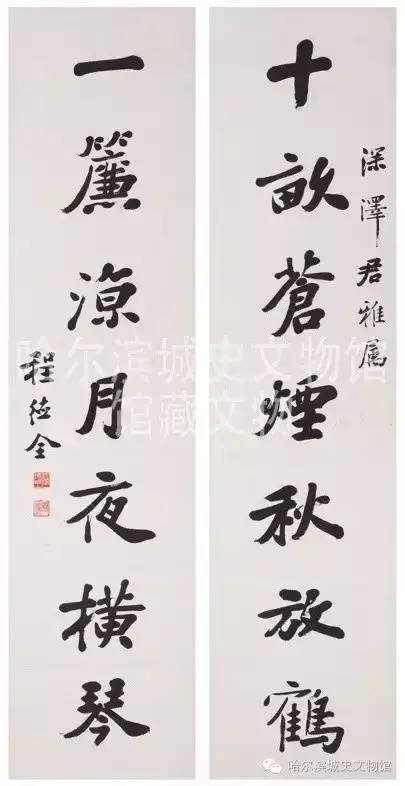 深澤君雅属
十畝蒼煙秋放鶴
一簾涼月夜橫琴
程德全
哈尔滨城史文物馆
馆藏文物
哈尔滨城史文物馆